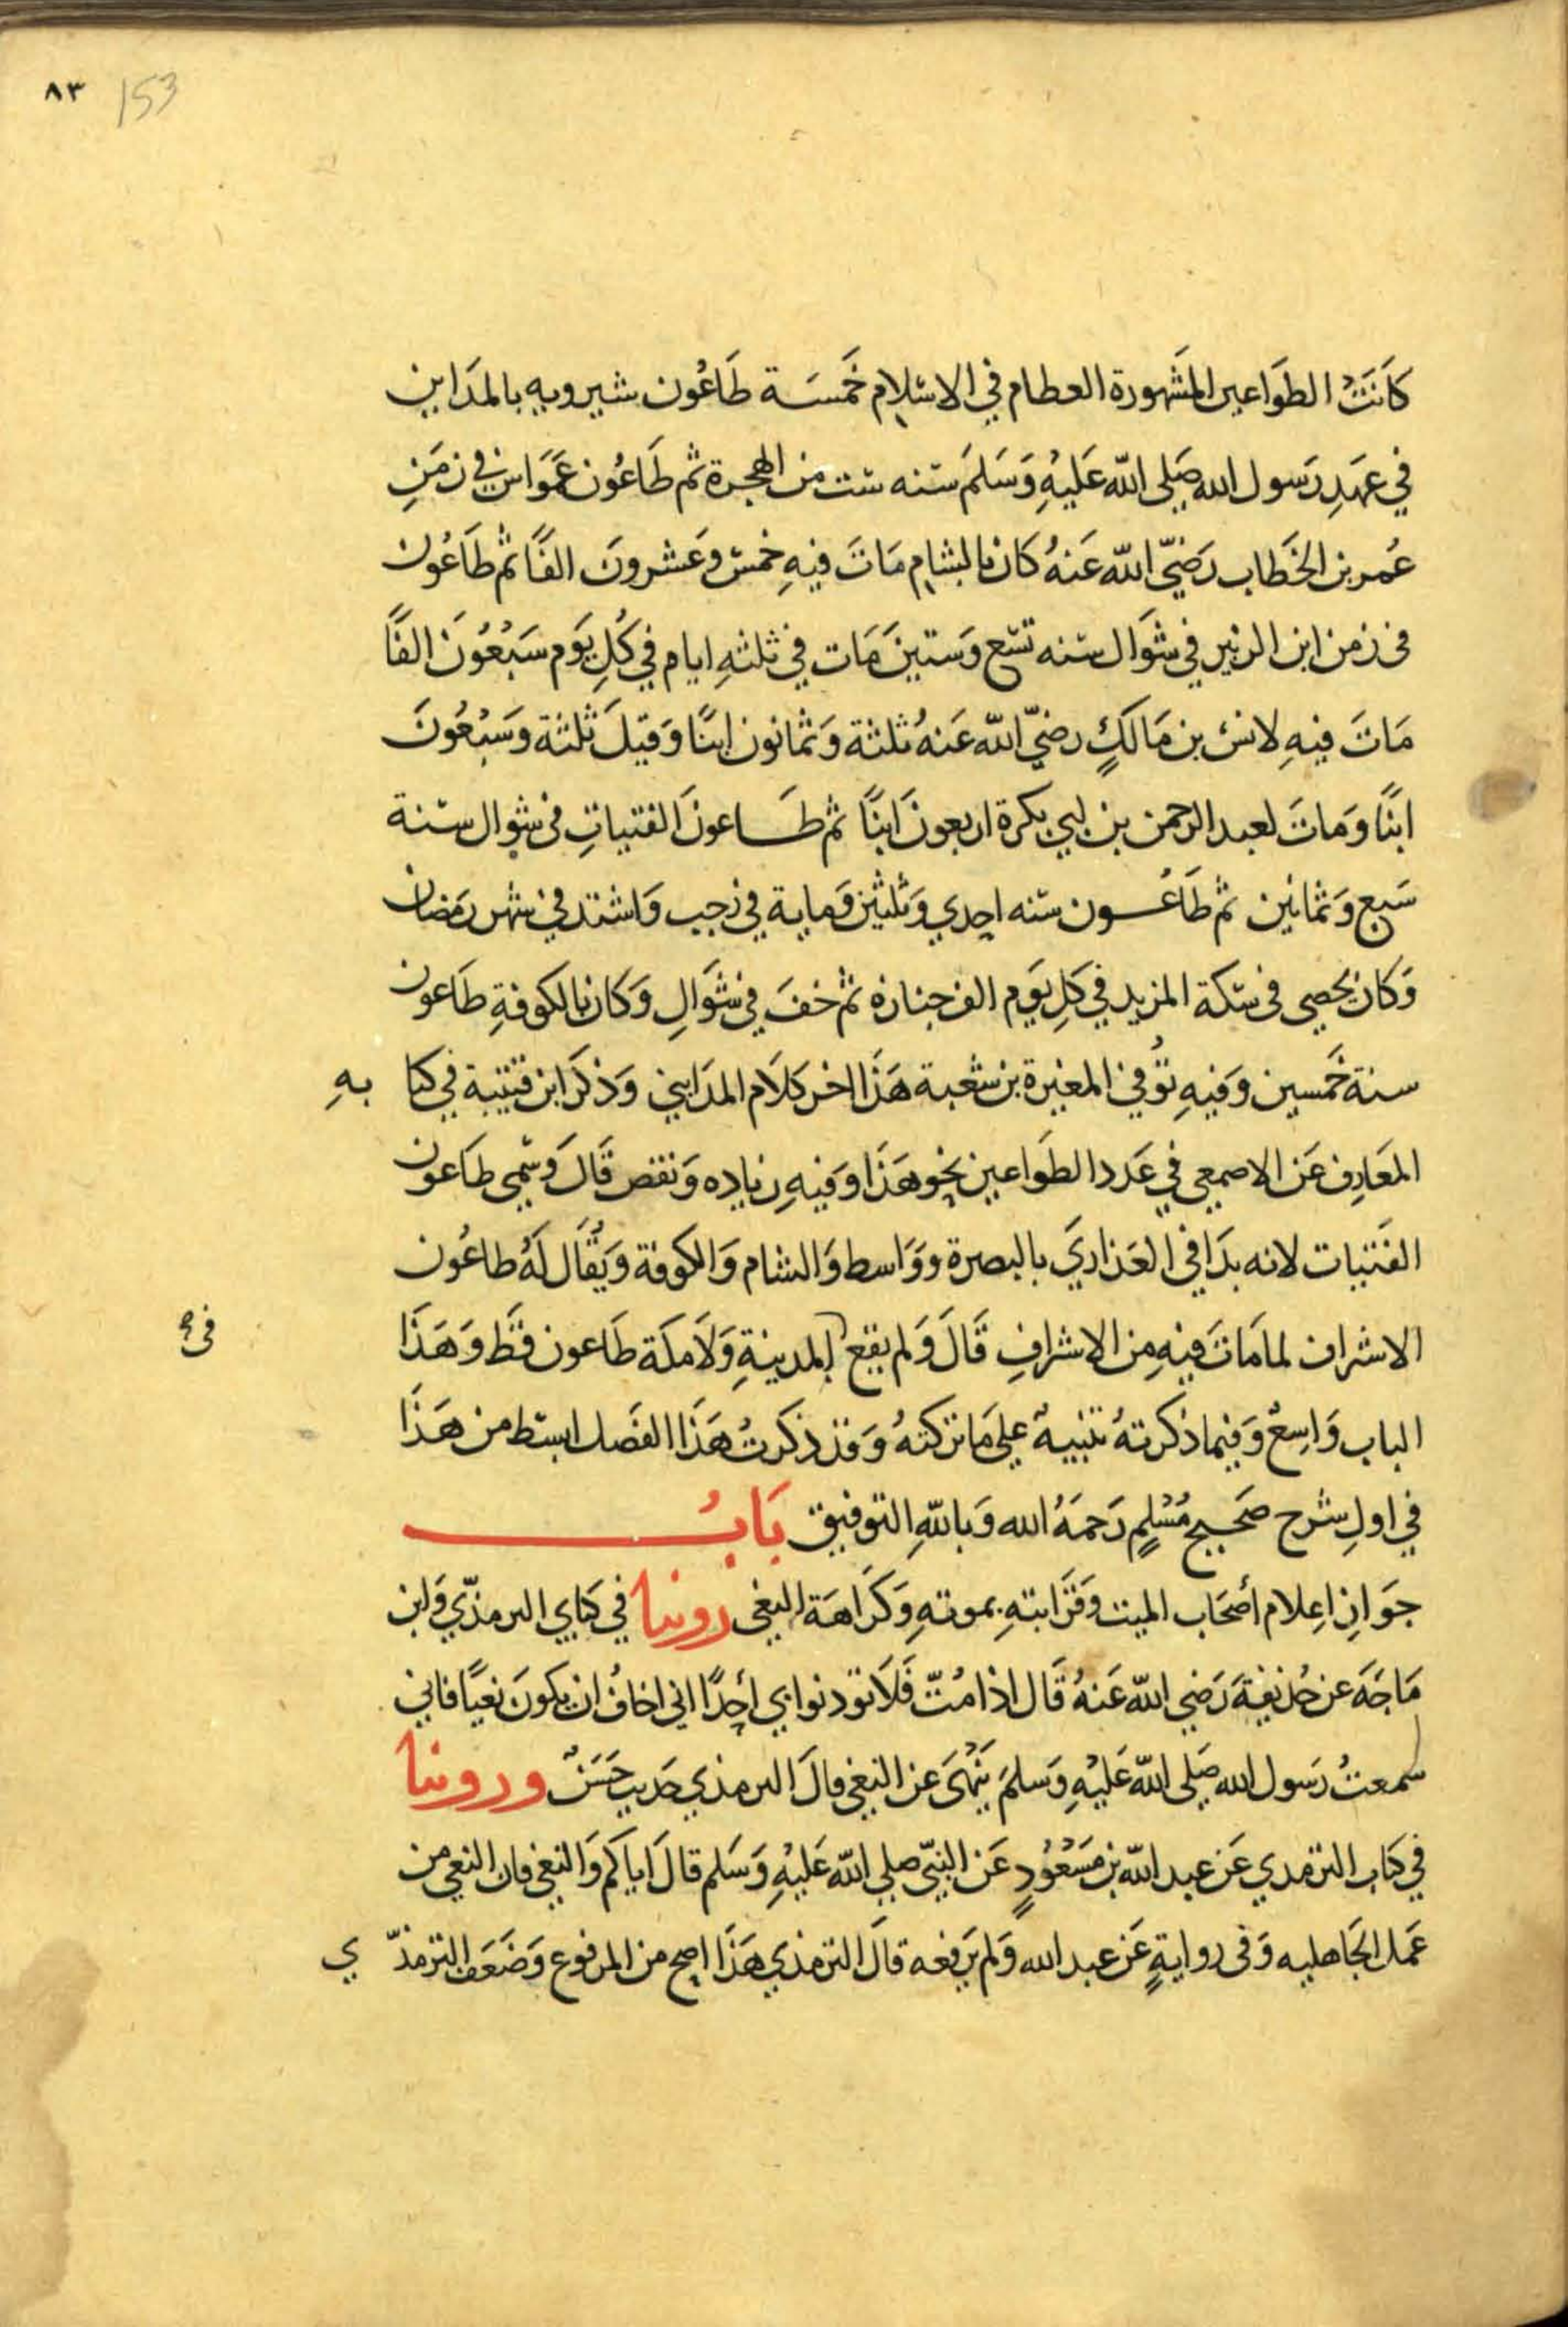 ٨٣ 153
كَانَتْ الطَوَاعين المَشَهورة العظام في الاسْلام خَمسَة طَاعُون شيرويه بالمدَاين
في عَهدِ رَسول الله صَلى الله عَليْهِ وَسَلمَ سَنه ست من الهجرة ثم طَاعُون عَمَوَاس في زمَنِ
عُمر بن الخَطاب رَضيَ الله عَنهُ كان بالشام مَاتَ فيهِ خمس وعَشرونَ الفًا ثم طَاعُون
في زمن ابن الزبير في شوَال سنه تسع وَستينَ مَات في ثلثهِ ايام في كُلِ يَوم سَبْعُونَ الفًا
مَاتَ فيهِ لانس بن مَالكٍ رضيَ الله عَنهُ ثلثة وَثمانون ابنًا وَقيلَ ثلثة وسَبْعُونَ
ابنًا وَمَاتَ لعبد الرحمن بن ابي بكرة اربعونَ ابنًا ثم طَاعونَ الفتياتِ في شوال سَنة
سَبع وَثمانين ثم طَاعُون سَنه احدي وَثلثين وَماية في رَجب وَاشتد في شهر رمَضان
وَكان يحصي في سكة المزيد في كلِ يَوم الف جنازه ثم خفَ في شَوَالِ وَكان بالكوفةِ طَاعون
سنة خَمسين وَفيهِ تُوفي المغيرة بن شعبة هَذا اخر كلَام المدَايني وَذكرَ ابن قتيبة في كتابهِ
المعَارِف عَن الاصمعي في عَدد الطَواعين نحو هَذا وَفيهِ زياده وَنقص قَالَ وَسُمي طَاعون
الفَتيات لانه بدَا في العَذاريَ بالبصرة ووَاسط وَالشام وَالكوفة وَيُقَال لَهُ طاعُون
الاشراف لما مَاتَ فيهِ مِن الاشرافِ قَالَ وَلم يقع بالمدينةِ وَلَا مكَة طَاعون قَط وَهَذَا
في
الباب وَاسِعٌ وَفيما ذكرتهُ تنبيهٌ علي مَا تركتهُ وَقد ذكرتُ هَذَا الفصَل ابسَط من هَذَا
في اولِ شرح صَحيح مُسْلمٍ رَحمَهُ الله وَبالله التوفيق بَابُ
جوَازِ اِعلام أصحَاب الميت وَقَرَابتهِ بموتهِ وَكَرَاهَة النعي روينا في كتابي الترمذي وَابن
مَاجَه عن حُذيفةَ رَضي الله عَنهُ قَال اذا مُتّ فَلَا توذنوا بي احدًا اني اخافُ ان يكونَ نعيًا فاني
سمعتُ رَسول الله صَلى الله عَليْهِ وَسَلمَ يَنْهَى عن النعي قالَ الترمذي حَديث حَسَنٌ وروينا
في كتاب الترمدي عَن عبد الله بن مَسْعُودٍ عَن النبي صلي الله عَليْهِ وَسَلم قالَ اياكم وَالنعي فان النعي من
عَمل الجَاهليه وَفي روايةٍ عَن عبد الله وَلم يَرفعه قالَ الترمذي هَذَا اصح من المرفوع وَضعَف الترمذي